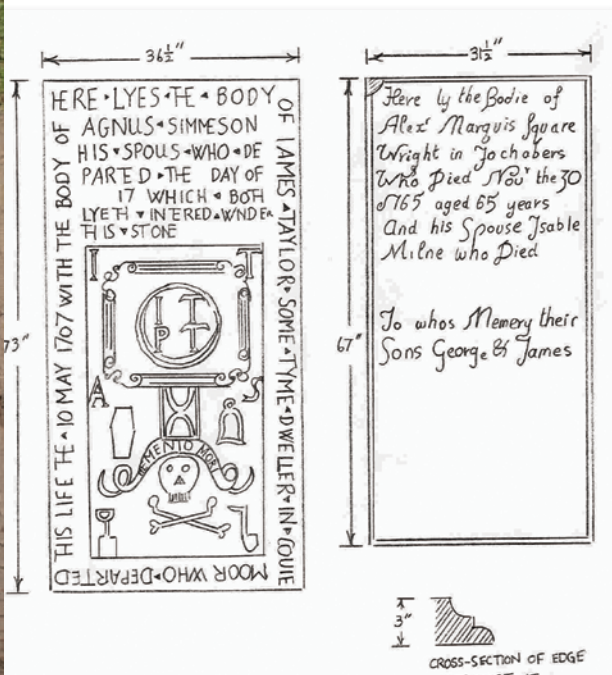 36½"
HERE LYES TE BODY
OF IAMES TAYLOR SOME TYME DWELLER IN COUIE
MOOR WHO DEPARTED
THIS LIFE TE 10 MAY 1707 WITH THE BODY OF
AGNUS SIMMESON
HIS SPOUS WHO DE
PARTED THE DAY OF
17 WHICH BOTH
LYETH INTERED WNDER
THIS STONE
I T
I T
P
A S
MEMENTO MORI
73"
31½"
Here ly the Bodie of
Alexr Marquis Square
Wright in Jochabers
Who Died Novr the 30
1765 aged 65 years
And his Spouse Isable
Milne who Died
To whos Memery their
Sons George & James
67"
3"
CROSS-SECTION OF EDGE